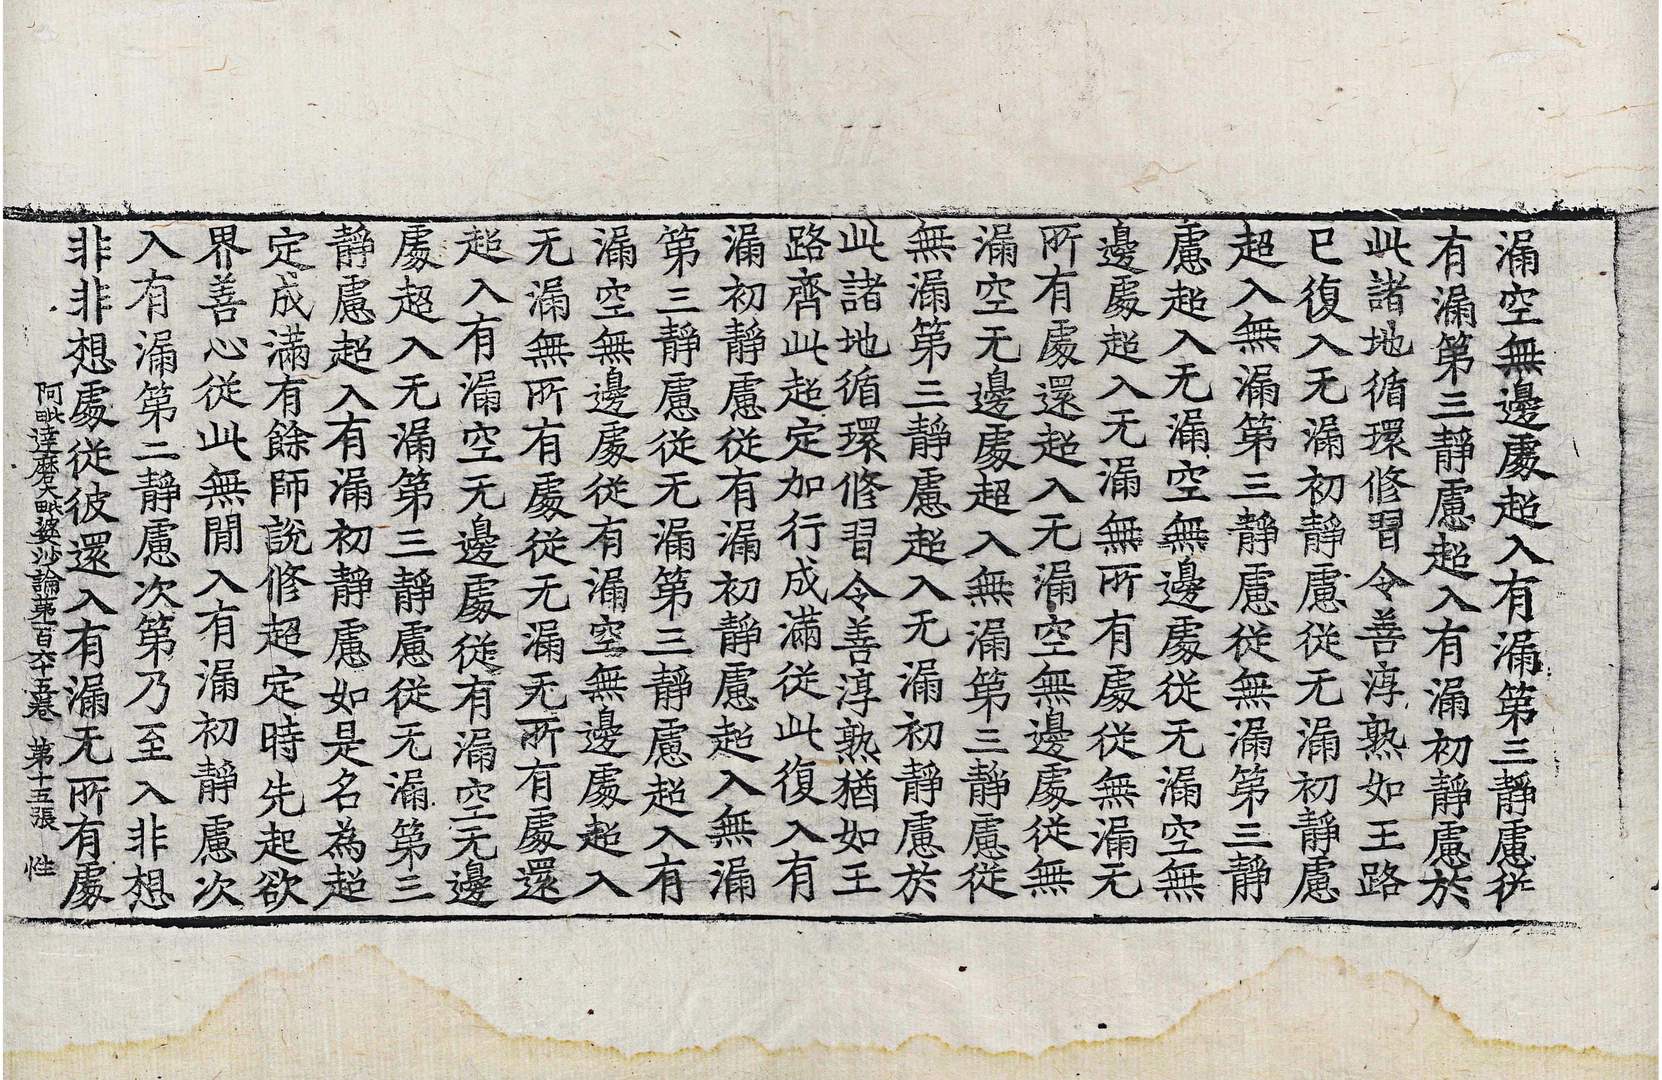 漏空無邊處超入有漏第三靜慮從
有漏第三靜慮超入有漏初靜慮於
此諸地循環修習令善淳熟如王路
已復入无漏初靜慮從无漏初靜慮
超入無漏第三靜慮從無漏第三靜
慮超入无漏空無邊處從无漏空無
邊處超入无漏無所有處從無漏无
所有處還超入无漏空無邊處從無
漏空无邊處超入無漏第三靜慮從
無漏第三靜慮超入无漏初靜慮於
此諸地循環修習令善淳熟猶如王
路齊此超定加行成滿從此復入有
漏初靜慮從有漏初靜慮超入無漏
第三靜慮從无漏第三靜慮超入有
漏空無邊處從有漏空無邊處超入
无漏無所有處從无漏无所有處還
超入有漏空无邊處從有漏空无邊
處超入无漏第三靜慮從无漏第三
靜慮超入有漏初靜慮如是名為超
定成滿有餘師說修超定時先起欲
界善心從此無閒入有漏初靜慮次
入有漏第二靜慮次第乃至入非想
非非想處從彼還入有漏无所有處
阿毗達磨大毗婆沙論第一百六十五卷 第十五張 性